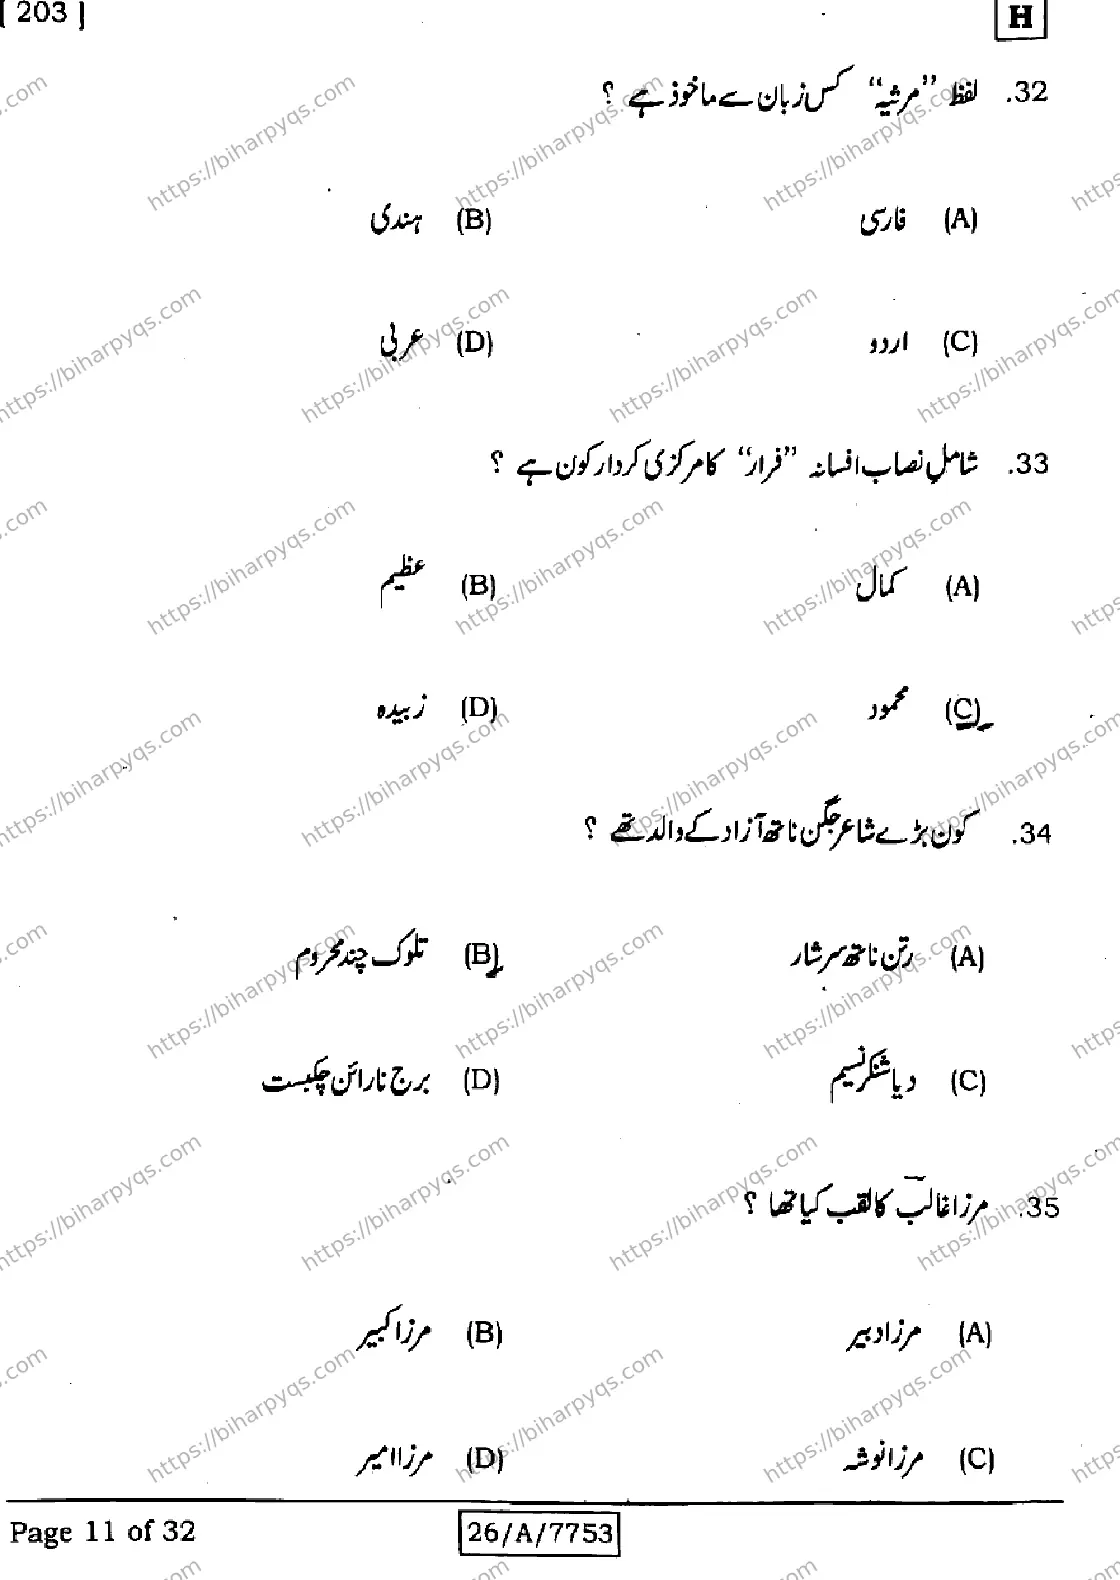 [ 203 ]
H
32. لفظ ”مرثیہ“ کس زبان سے ماخوذ ہے ؟
(A) فارسی (B) ہندی
(C) اردو (D) عربی
33. شامل نصاب افسانہ ”فرار“ کا مرکزی کردار کون ہے ؟
(A) کمال (B) عظیم
(C) محمود (D) زبیدہ
34. کون بڑے شاعر جگن ناتھ آزاد کے والد تھے ؟
(A) رتن ناتھ سرشار (B) تلوک چند محروم
(C) دیا شنکر نسیم (D) برج نارائن چکبست
35. مرزا غالب کا لقب کیا تھا ؟
(A) مرزا دبیر (B) مرزا کبیر
(C) مرزا نوشہ (D) مرزا امیر
Page 11 of 32
26/A/7753
https://biharpyqs.com